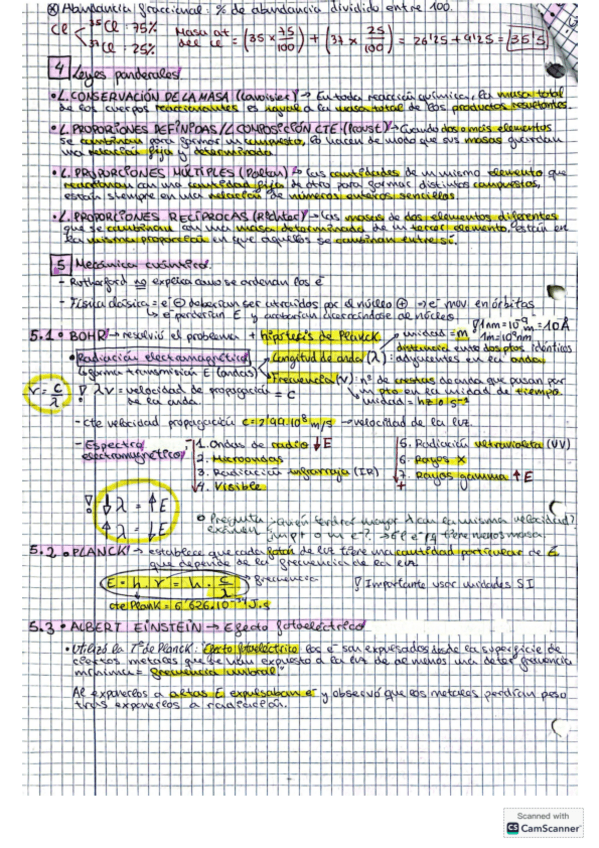 ⊗ Abundancia fraccional: % de abundancia dividido entre 100.
Cl < ³⁵Cl : 75%
³⁷Cl : 25%
Masa at del Cl = (35 × 75/100) + (37 × 25/100) = 26'25 + 9'25 = 35'5
4 Leyes ponderales
• L. CONSERVACIÓN DE LA MASA (Lavoisier) → En toda reacción química, la masa total
de los cuerpos reaccionantes es igual a la masa total de los productos resultantes.
• L. PROPORCIONES DEFINIDAS / L. COMPOSICIÓN CTE. (Proust) → Cuando dos o más elementos
se combinan para formar un compuesto, lo hacen de modo que sus masas guardan
una relación fija y determinada.
• L. PROPORCIONES MÚLTIPLES (Dalton) → las cantidades de un mismo elemento que
reaccionan con una cantidad fija de otro para formar distintos compuestos,
están siempre en una relación de números enteros sencillos.
• L. PROPORCIONES RECÍPROCAS (Richter) → las masas de dos elementos diferentes
que se combinan con una masa determinada de un tercer elemento, están en
la misma proporción en que aquellos se combinan entre sí.
5 Mecánica cuántica
- Rutherford no explica como se ordenan los e⁻
- Física clásica = e⁻ ⊖ deberían ser atraídos por el núcleo ⊕ → e⁻ mov en órbitas
↳ e⁻ perderían E y acabarían acercándose al núcleo
5.1 • BOHR → resolvió el problema + hipótesis de Planck
unidad = m
1nm = 10⁻⁹m = 10Å
1m = 10⁹nm
• Radiación electromagnética
Longitud de onda (λ) : distancia entre dos ptos idénticos
adyacentes en la onda
↳ forma transmisión E (ondas)
Frecuencia (ν) : nº de crestas de onda que pasan por
un pto en la unidad de tiempo
unidad = hz o s⁻¹
ν = c/λ
! λν = velocidad de propagación = c
de la onda
- cte velocidad propagación c = 2'99·10⁸ m/s → velocidad de la luz.
- Espectro electromagnético
1. Ondas de radio ↓E
2. Microondas
3. Radiación infrarroja (IR)
4. Visible
5. Radiación ultravioleta (UV)
6. Rayos X
7. Rayos gamma ↑E
+
! ↓λ = ↑E
↑λ = ↓E
○ Pregunta examen: ¿quién tendrá mayor λ con la misma velocidad?
¿un p⁺ o un e⁻? → El e⁻ tiene menos masa.
5.2 • PLANCK → establece que cada fotón de luz tiene una cantidad particular de E
que depende de la frecuencia de la luz
E = h · ν = h · c/λ
frecuencia
! Importante usar unidades SI
cte Plank = 6'626·10⁻³⁴ J·s
5.3 • ALBERT EINSTEIN → Efecto fotoeléctrico
• Utilizó la Tª de Planck: Efecto fotoeléctrico los e⁻ son expulsados desde la superficie de
ciertos metales que se han expuesto a la luz de al menos una deter. frecuencia
mínima = frecuencia umbral.
Al exponerlos a altas E expulsaban e⁻ y observó que los metales perdían peso
tras exponerlos a radiación.
Scanned with
CS CamScanner